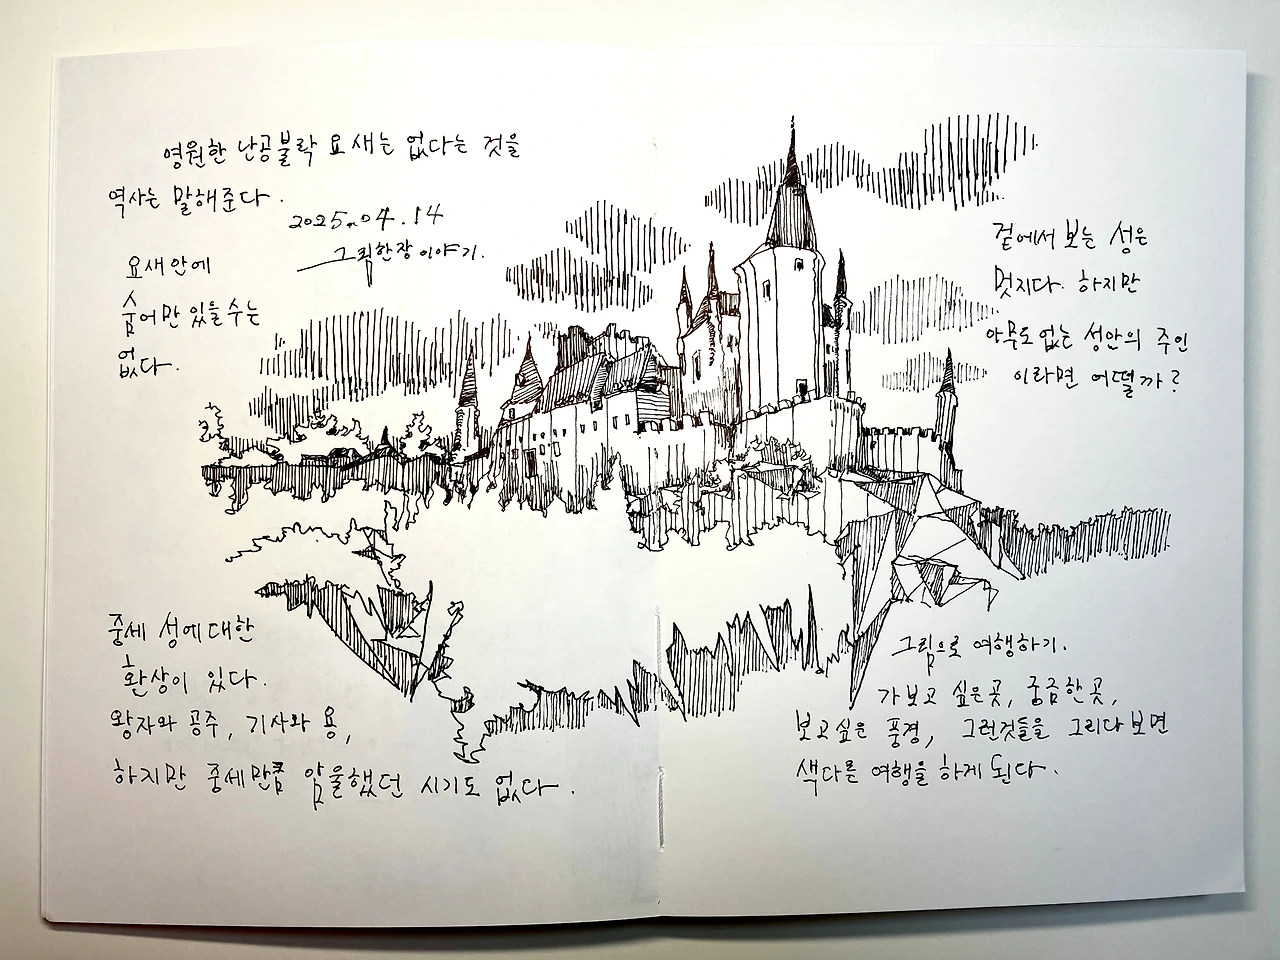 영원한 난공불락 요새는 없다는 것을
역사는 말해준다.
2025.04.14
그림한장이야기.
요새안에
숨어만 있을수는
없다.
겉에서 보는 성은
멋지다. 하지만
아무도 없는 성안의 주인
이라면 어떨까?
중세 성에 대한
환상이 있다.
왕자와 공주, 기사와 용,
하지만 중세만큼 암울했던 시기도 없다.
그림으로 여행하기.
가보고 싶은곳, 궁금한 곳,
보고싶은 풍경, 그런것들을 그리다 보면
색다른 여행을 하게 된다.